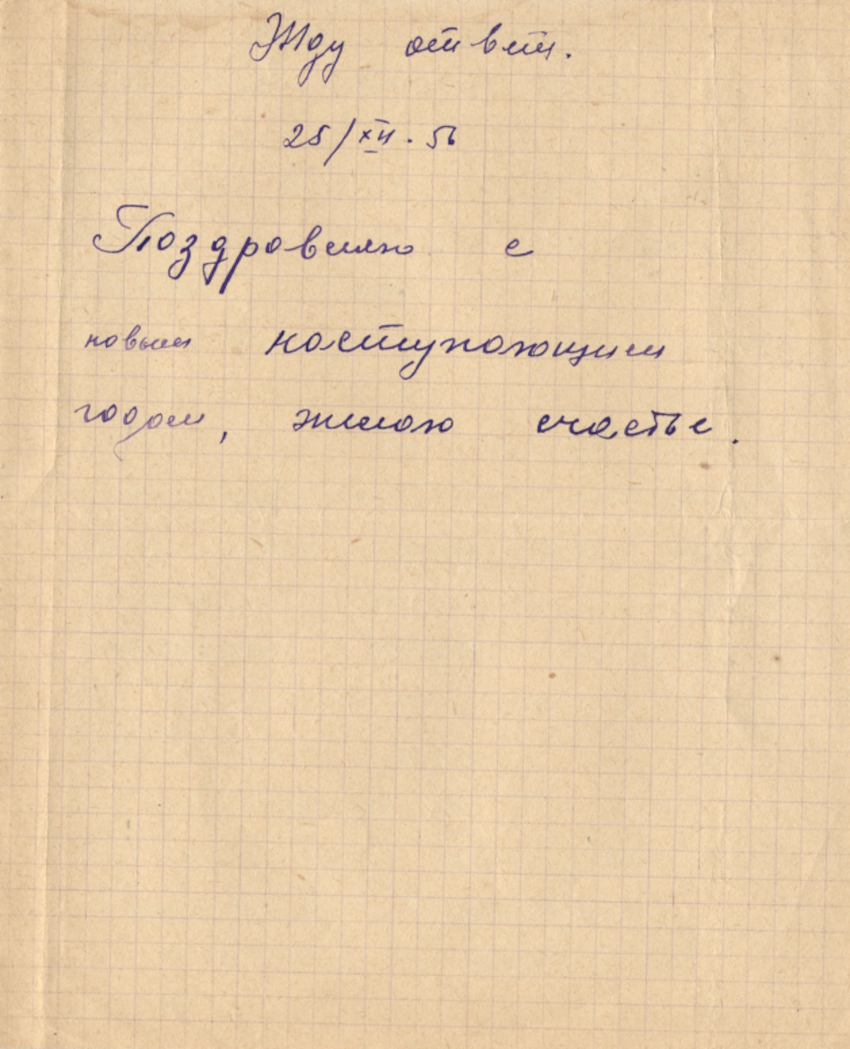 Жду ответ.
25/XII. 56
Поздровляю с
новым наступающим
годом, желаю счастье.